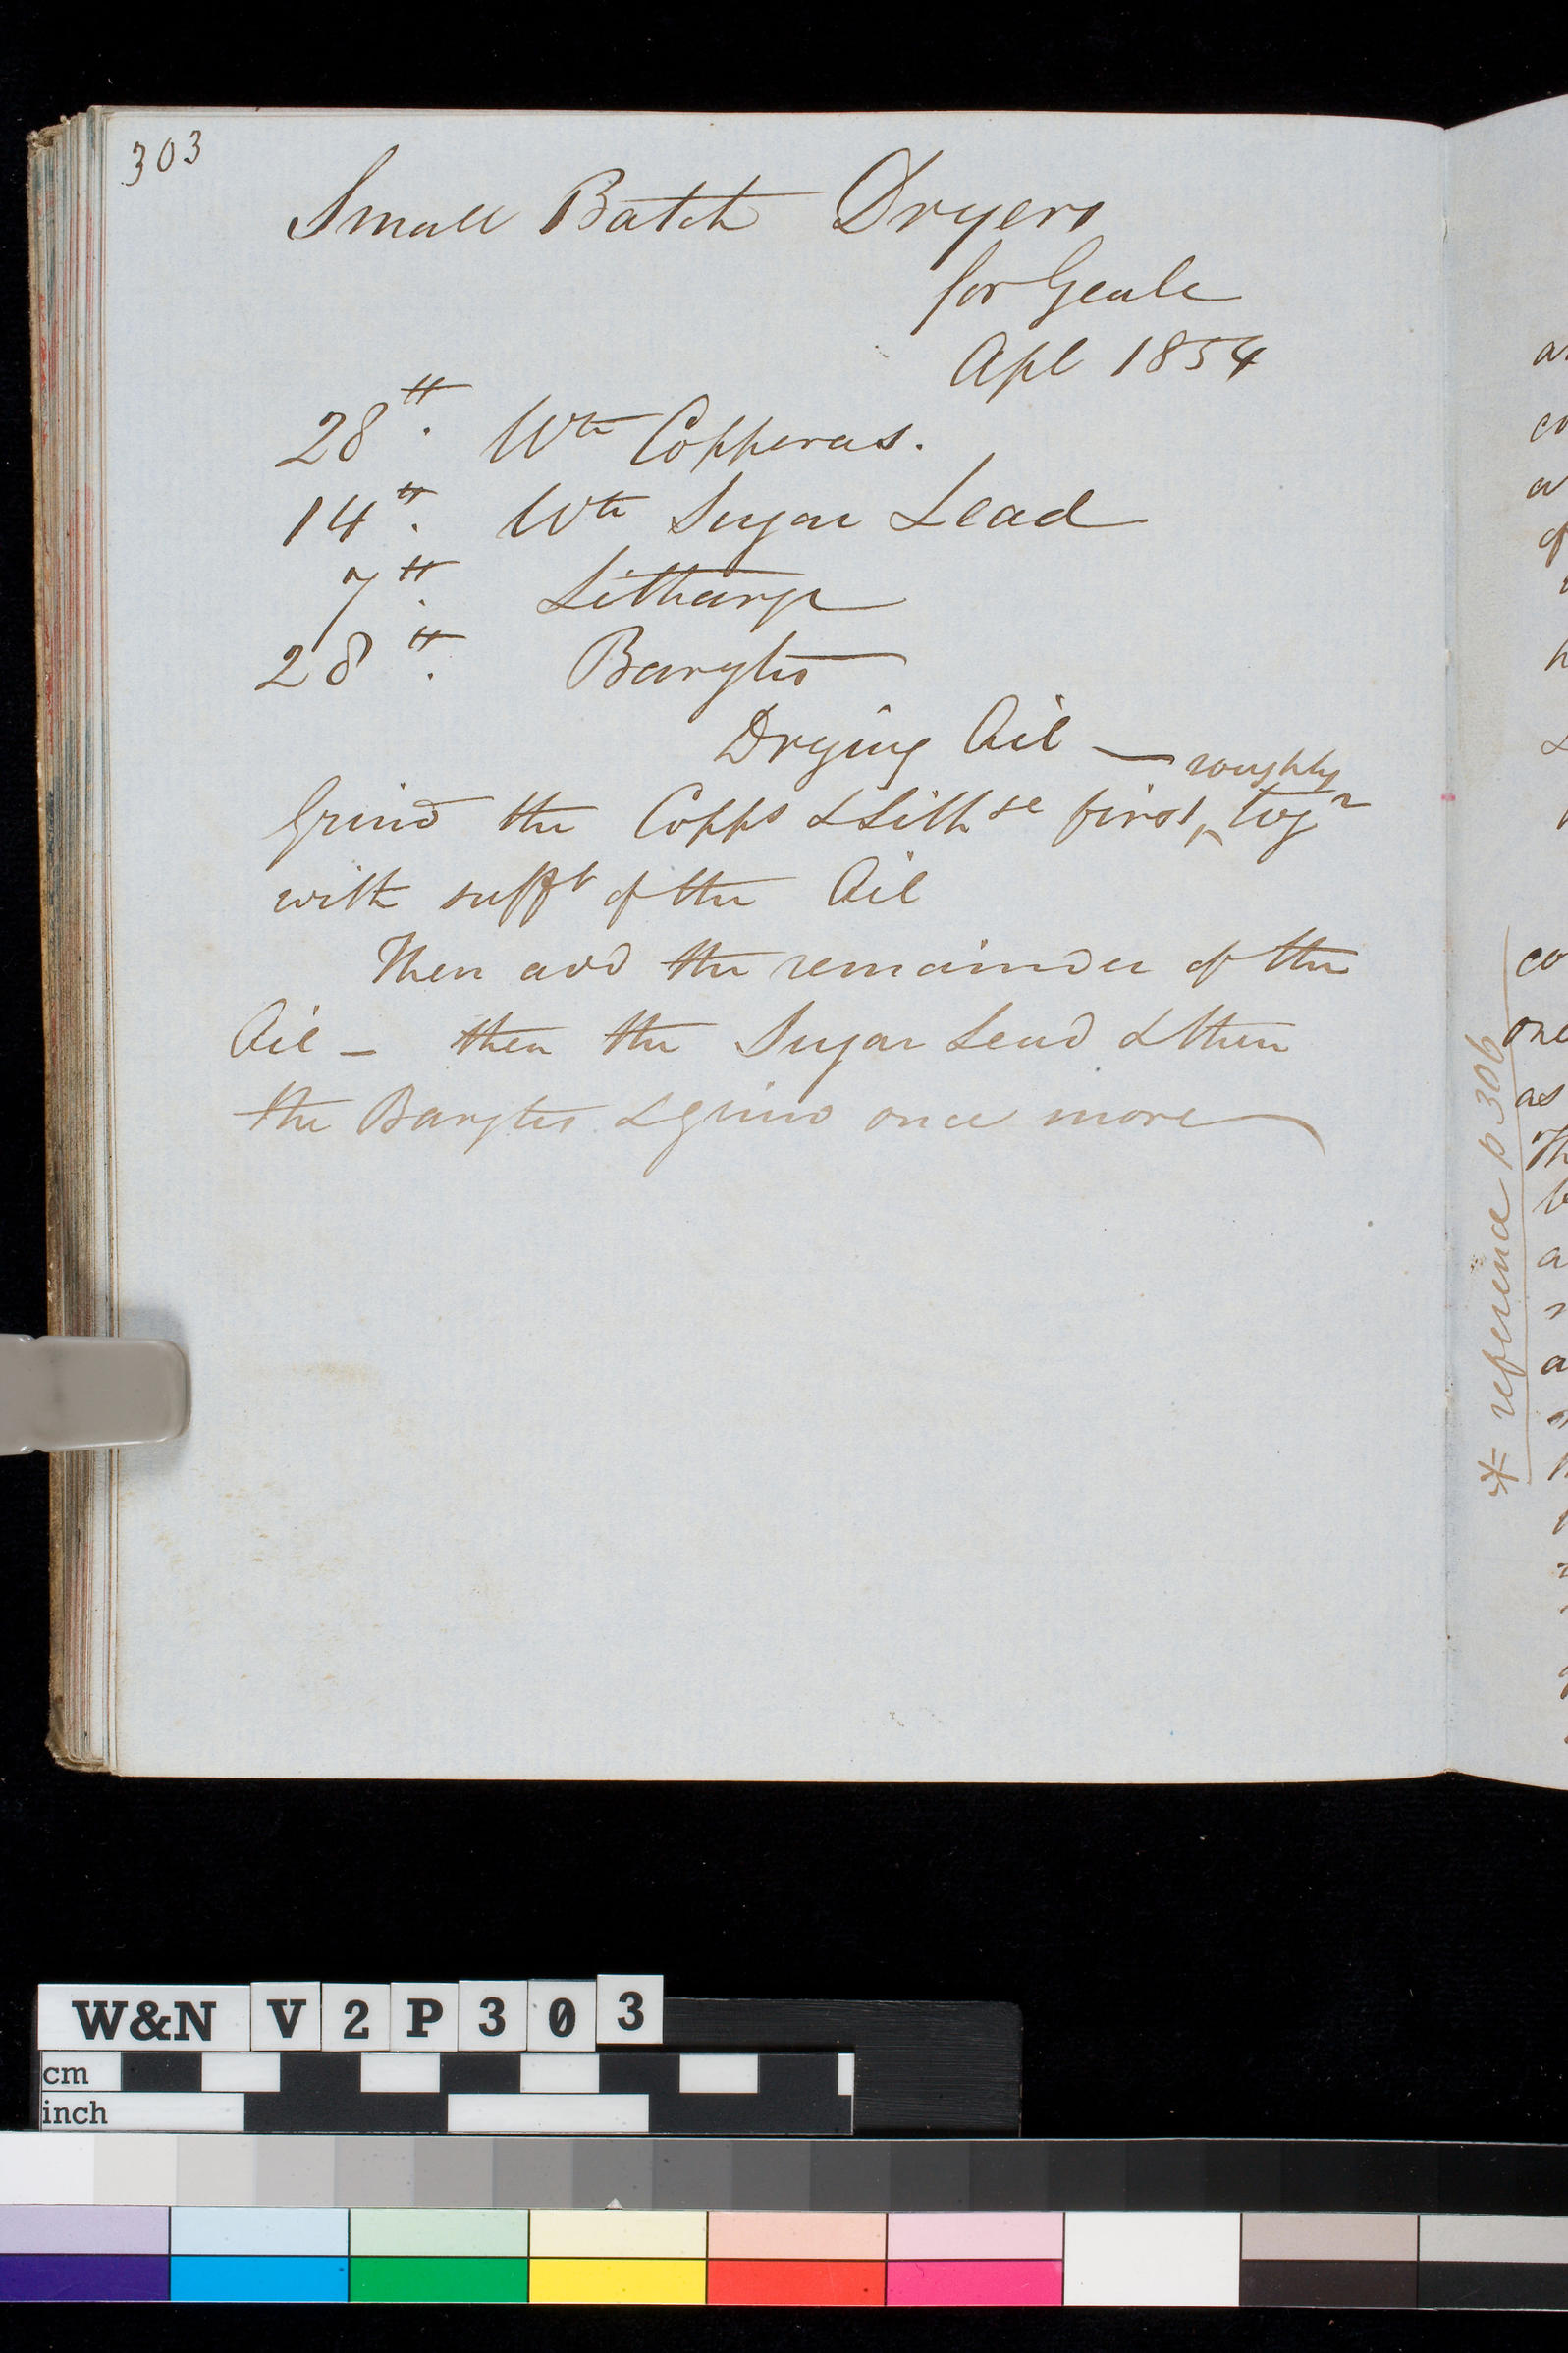 303
Small Batch Dryers
for Geale
Apl 1854
28 ℔. Wte Copperas.
14 ℔. Wte Sugar Lead
7 ℔. Litharge
28 ℔. Barytes
Drying Oil —
roughly
Grind the Copps & Lithge first, togr
with sufft of the Oil
Then add the remainder of the
Oil — then the Sugar Lead & then
the Barytes & grind once more
* reference p 306
co
one
as
W&N V2P303
cm
inch